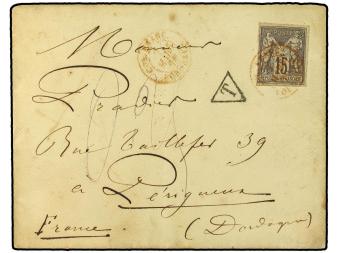 Monsieur
15
T
Pradier
Rue Taillefer 39
a Périgueux
France (Dordogne)